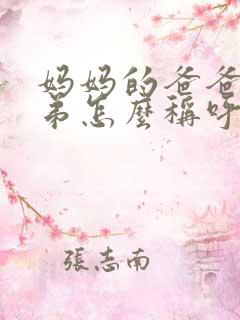 妈妈的爸爸
弟怎麼稱呼
張志南